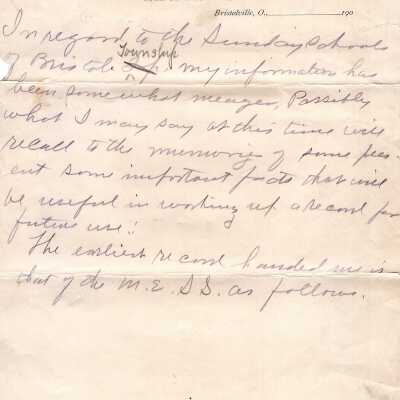 Bristolville, O., 190
In regard to the Sunday Schools
Township
of Bristol my information has
been some what meager, Possibly
what I may say at this time will
recall to the memories of some pres-
ent some important facts that will
be useful in working up a record for
future use.
The earliest record handed me is
that of the M.E. S.S. as follows.